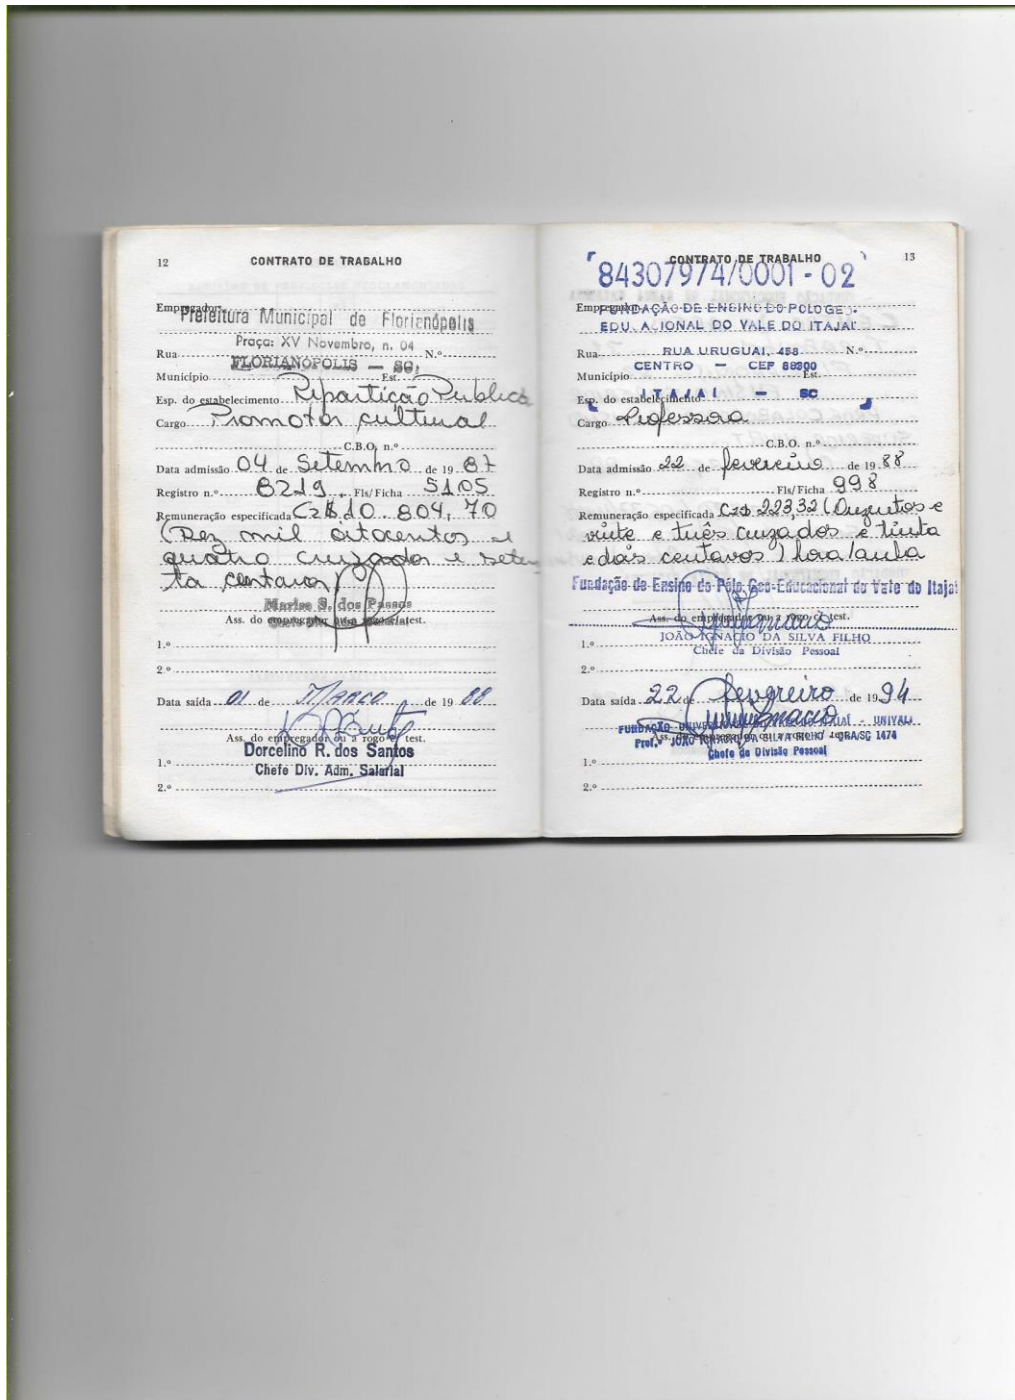 12
CONTRATO DE TRABALHO
Empregador
Prefeitura Municipal de Florianópolis
Praça: XV Novembro, n. 04
Rua N.º
FLORIANÓPOLIS — SC.
Município Est.
Esp. do estabelecimento Repartição Publica
Cargo Promotor cultural
C.B.O. n.º
Data admissão 04 de Setembro de 19 87
Registro n.º 8219 Fls/Ficha 5105
Remuneração especificada Cz$ 10.804,70
(Dez mil oitocentos e
quatro cruzados e seten
ta centavos)
Marise S. dos Passos
Ass. do empregador ou a rogo c/ test.
1.º
2.º
Data saída 01 de Março de 19 88
Ass. do empregador ou a rogo c/ test.
Dorcelino R. dos Santos
1.º
Chefe Div. Adm. Salarial
2.º
13
CONTRATO DE TRABALHO
84307974/0001-02
Empregador
FUNDAÇÃO DE ENSINO DO POLO GEO-
EDU.A.IONAL DO VALE DO ITAJAÍ
Rua RUA URUGUAI, 458 N.º
CENTRO — CEP 88300
Município Est.
ITAJAÍ — SC
Esp. do estabelecimento
Cargo Professora
C.B.O. n.º
Data admissão 22 de fevereiro de 19 88
Registro n.º Fls/Ficha 998
Remuneração especificada Cz$ 223,32 (Duzentos e
vinte e três cruzados e trinta
e dois centavos) hora/aula
Fundação de Ensino do Pólo Geo-Educacional do Vale do Itajaí
Ass. do empregador ou a rogo c/ test.
JOÃO IGNACIO DA SILVA FILHO
1.º
Chefe da Divisão Pessoal
2.º
Data saída 22 de fevereiro de 19 94
FUNDAÇÃO UNIVERSIDADE DO VALE DO ITAJAÍ - UNIVALI
Ass. do empregador ou a rogo c/ test.
Prof. JOÃO IGNACIO DA SILVA FILHO - CRA/SC 1474
Chefe da Divisão Pessoal
1.º
2.º